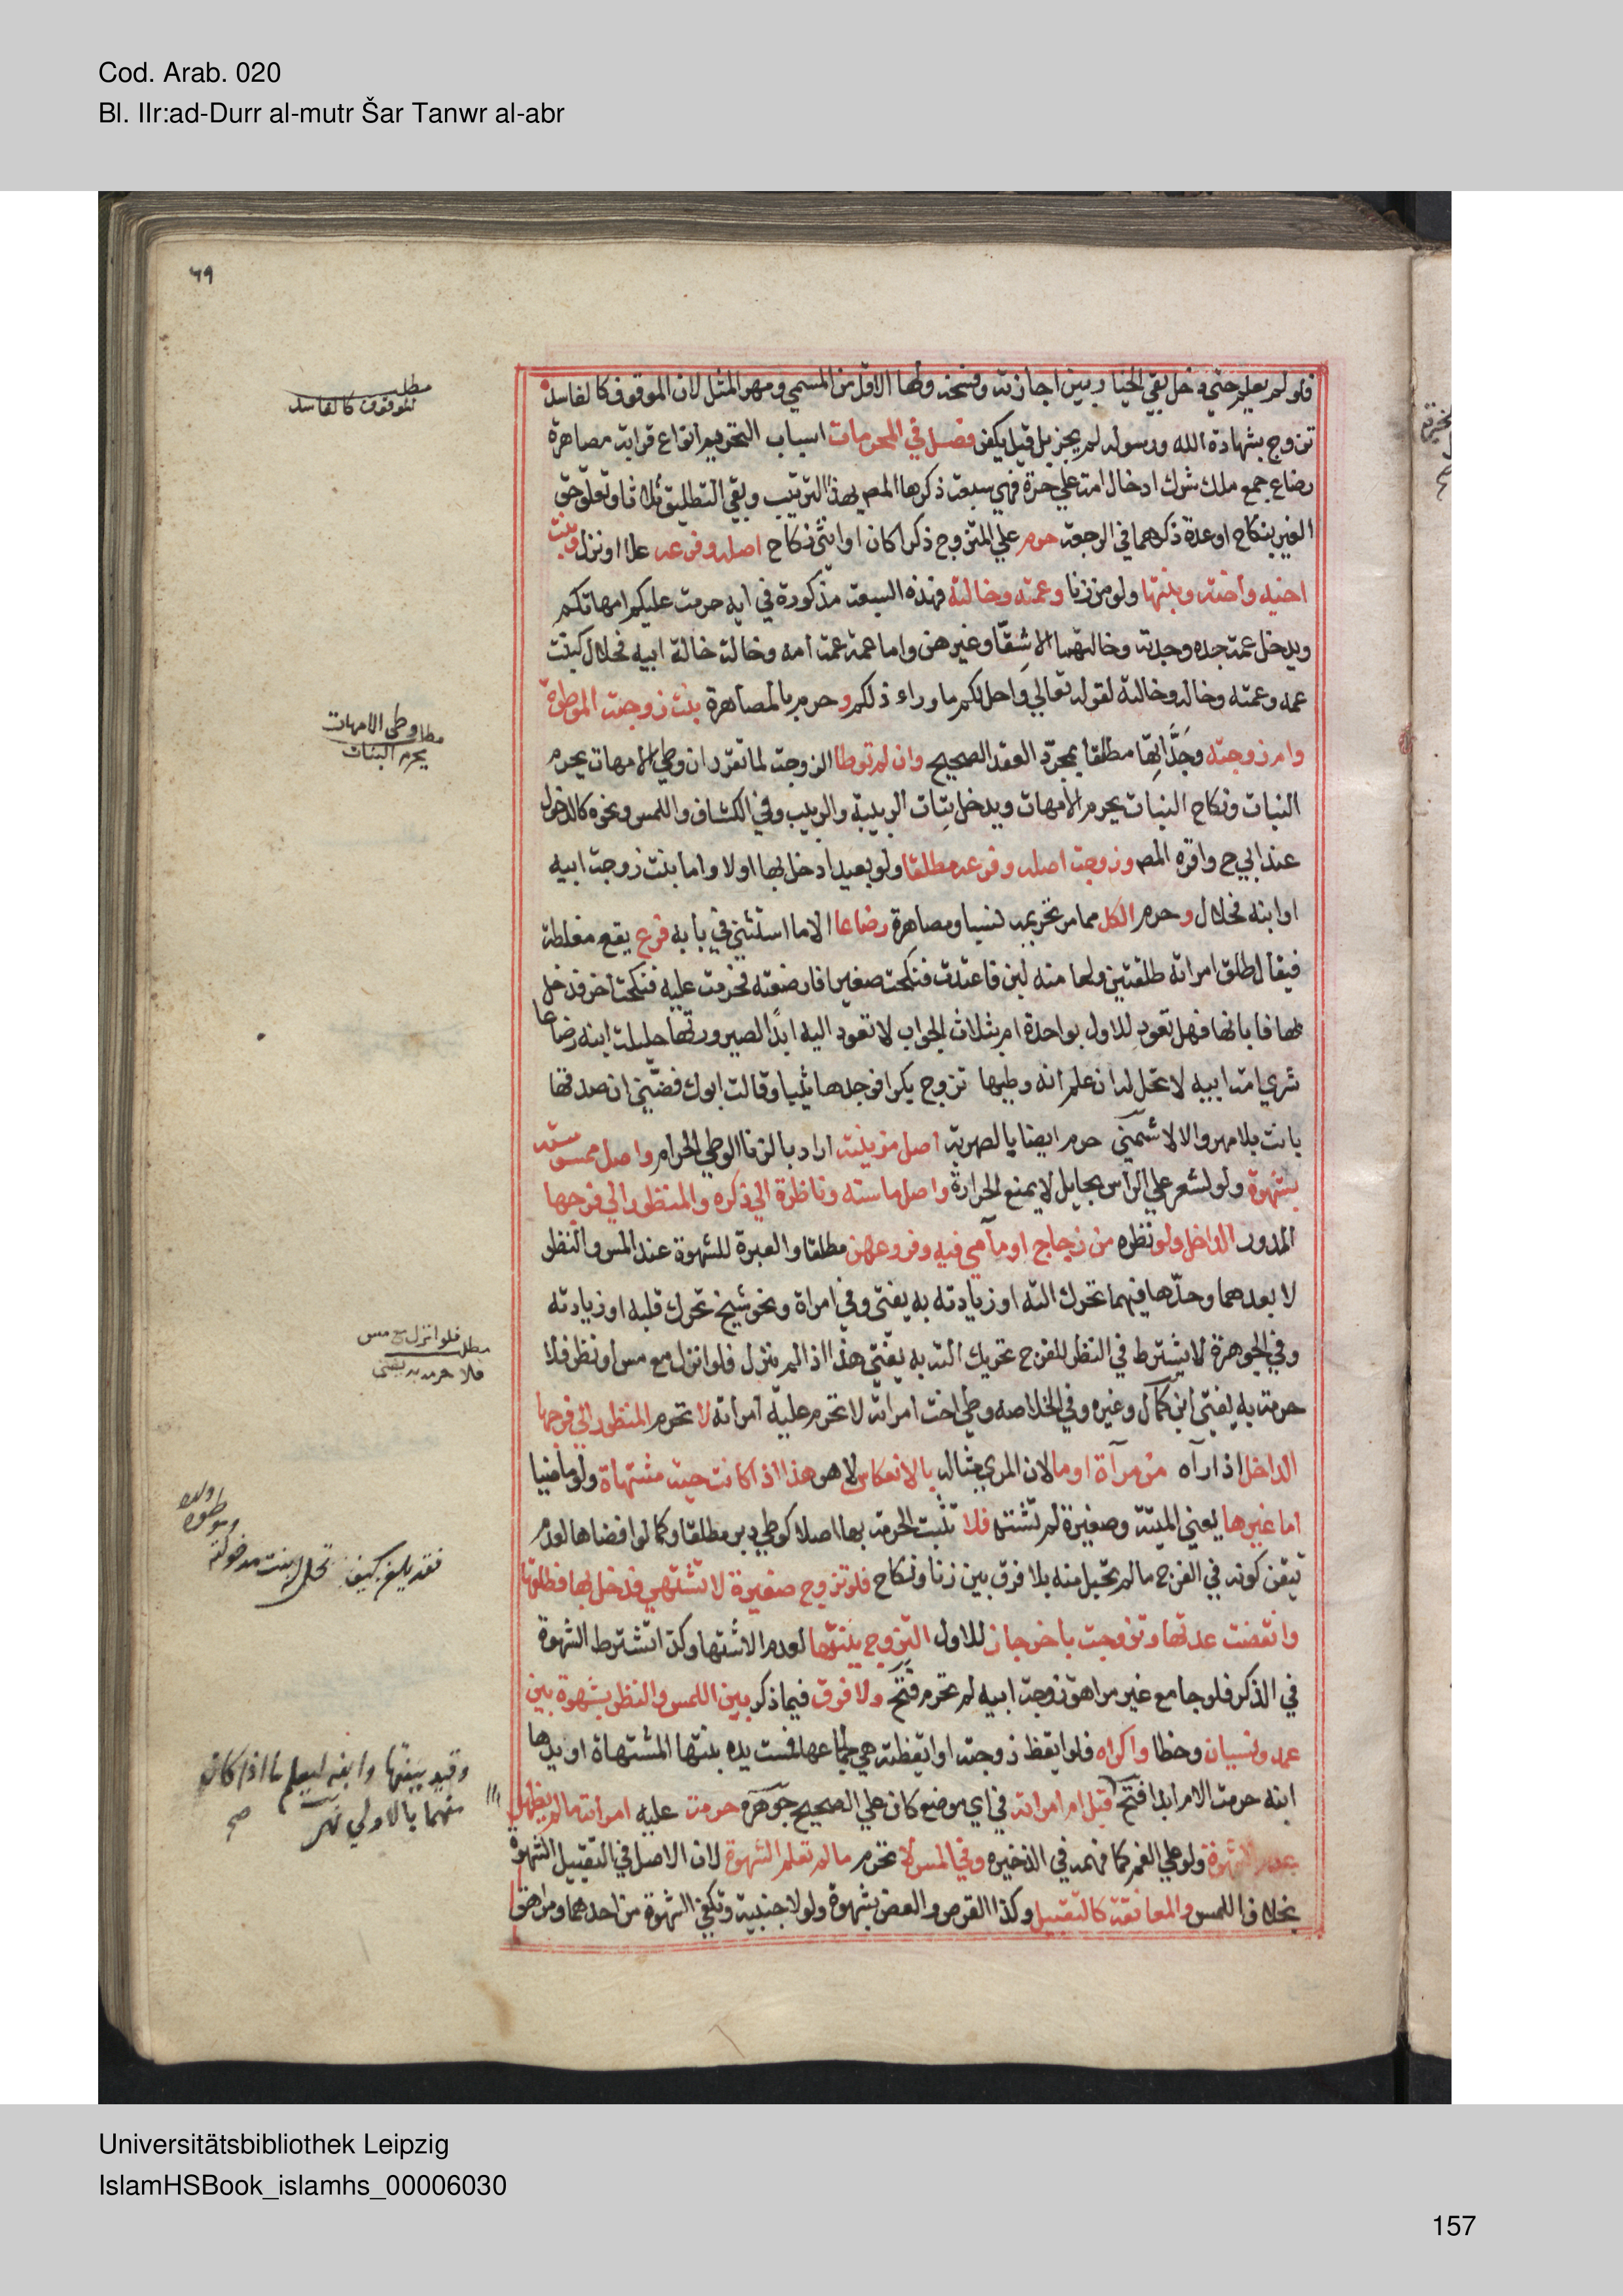 Cod. Arab. 020
Bl. IIr:ad-Durr al-mutr Šar Tanwr al-abr
٦٩
فلو لم يعلم حتى دخل بقي الخيار بين اجازته وفسخه ولها الاقل من المسمي ومهر المثل لان الموقوف كالفاسد
تزوج بشهادة الله ورسوله لم يجز بل قيل يكفر فصل في المحرمات اسباب التحريم انواع قرابة مصاهرة
رضاع جمع ملك شرك ادخال امة علي حرة فهي سبعة ذكرها المص بهذا الترتيب وبقي التطليق ثلاثا وتعلق حق
الغير بنكاح او عدة ذكرهما في الرجعة حرم علي المتزوج ذكرا كان او انثى نكاح اصله وفرعه علا او نزل وبنت
اخيه واخته وبنتها ولو من زنا وعمته وخالته فهذه السبعة مذكورة في اية حرمت عليكم امهاتكم
ويدخل عمة جده وجدته وخالتهما الاشقا وغيرهن واما عمة عمة امه وخالة خالة ابيه فحلال كبنت
عمه وعمته وخاله وخالته لقوله تعالي واحل لكم ما وراء ذلكم وحرم بالمصاهرة بنت زوجته الموطوة
وام زوجته وجداتها مطلقا بمجرد العقد الصحيح وان لم توطا الزوجة لما تقرر ان وطي الامهات يحرم
البنات ونكاح البنات يحرم الامهات ويدخل بنات الربيبة والربيب وفي الكشاف واللمس ونحوه كالدخول
عند ابي ح واقره المص وزوجة اصله وفرعه مطلقا ولو بعيدا دخل بها اولا واما بنت زوجة ابيه
او ابنه فحلال وحرم الكل مما مر تحريمه نسبا ومصاهرة رضاعا الا ما استثني في بابه فرع يقع مغلطة
فيقال طلق امراته طلقتين ولها منه لبن فاعتدت فنكحت صغيرا فارضعته فحرمت عليه فنكحت اخر فدخل
بها فابانها فهل تعود للاول بواحدة ام بثلاث الجواب لا تعود اليه ابدا لصيرورتها حليلة ابنه رضاعا
شري امة ابيه لا تحل له ان علم انه وطيها تزوج بكرا فوجدها ثيبا وقالت ابوك فضني ان صدقها
بانت بلا مهر والا لا شمني حرم ايضا بالصهرية اصل مزنيته اراد بالزنا الوطي الحرام واصل ممسوسته
بشهوة ولو لشعر علي الراس بحايل لا يمنع الحرارة واصل ماسته وناظرة الي ذكره والمنظور الي فرجها
المدور الداخل ولو نظره من زجاج او ما هي فيه وفروعهن مطلقا والعبرة للشهوة عند المس والنظر
لا بعدهما وحدها فيهما تحرك الته او زيادته به يفتى وفي امراة ونحو شيخ تحرك قلبه او زيادته
وفي الجوهرة لا يشترط في النظر للفرج تحريك الته به يفتي هذا اذا لم ينزل فلو انزل مع مس او نظر فلا
حرمة به يفتي ابن كمال وغيره وفي الخلاصه وطي اخت امراته لا تحرم عليه امراته لا تحرم المنظور الي فرجها
الداخل اذا رآه من مرآة او ما لان المري مثاله بالانعكاس لا هو هذا اذا كانت حية مشتهاة ولو ماضيا
اما غيرها يعني الميتة وصغيرة لم تشته فلا تثبت الحرمة بها اصلا كوطي دبر مطلقا وكما لو افضاها لعدم
تيقن كونه في الفرج ما لم تحبل منه بلا فرق بين زنا ونكاح فلو تزوج صغيرة لا تشتهي فدخل بها فطلقها
وانقضت عدتها وتزوجت باخر جاز للاول التزوج ببنتها لعدم الاشتها وكذا تشترط الشهوة
في الذكر فلو جامع غير مراهق زوجة ابيه لم تحرم فتح ولا فرق فيما ذكر بين اللمس والنظر بشهوة بين
عمد ونسيان وخطا واكراه فلو ايقظ زوجته او ايقظته هي لجماعها فمست يده بنتها المشتهاة او يدها
ابنه حرمت الام ابدا فتح قبل ام امراته في اي موضع كان علي الصحيح جوهرة حرمت عليه امراته ما لم يظهر
عدم الشهوة ولو علي الفم كما فهمه في الذخيره وفي المس لا تحرم ما لم تعلم الشهوة لان الاصل في التقبيل الشهوة
بخلاف اللمس والمعانقة كالتقبيل وكذا القرص والعض بشهوة ولو لاجنبية وتكفي الشهوة من احدهما ومراهق
مطلب
الموقوف كالفاسد
مطلب وطي الامهات
يحرم البنات
مطلب فلو انزل مع مس
فلا حرمة به يفتى
فقد يلغز كيف تحل بنت مدخولته
وموطوة ولده
وقيد ببنتها وابنه ليعلم ما اذا كان
منهما بالاولي نهر صح
Universitätsbibliothek Leipzig
IslamHSBook_islamhs_00006030
157